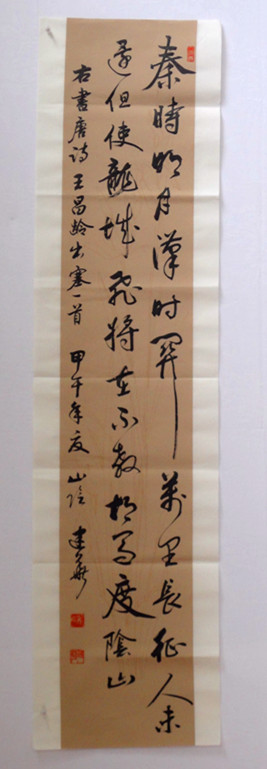 秦時明月漢时関萬里長征人未
還但使龍城飛將在不教胡馬度陰山
右書唐诗王昌龄出塞一首 甲午年夏 山陰 建華